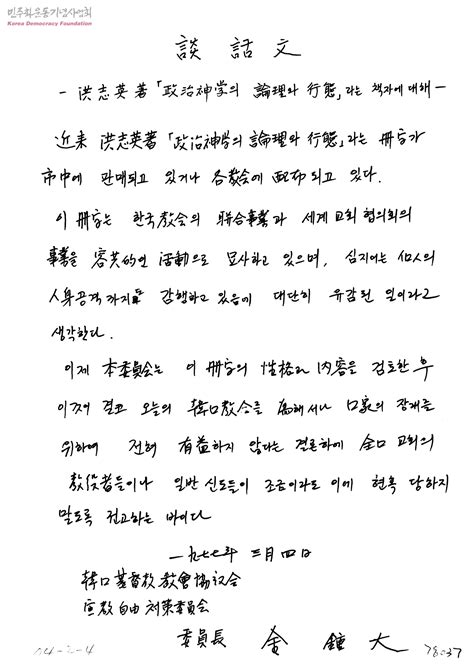 민주화운동기념사업회
Korea Democracy Foundation
談話文
― 洪志英著「政治神学의 論理와 行態」라는 책자에 대해 ―
近来 洪志英著「政治神学의 論理와 行態」라는 册子가
市中에 판매되고 있거나 各敎会에 配布되고 있다.
이 册子는 한국敎会의 聯合事業과 세계교회협의회의
事業을 容共的인 活動으로 묘사하고 있으며, 심지어는 個人의
人身公격까지 감행하고 있음에 대단히 유감된 일이라고
생각한다.
이제 本委員会는 이 册子의 性格과 内容을 검토한 후
이것이 결코 오늘의 韓國敎会를 為해서나 国家의 장래를
위하여 전혀 有益하지 않다는 결론하에 全国 교회의
敎役者들이나 일반 신도들이 조금이라도 이에 현혹 당하지
말도록 권고하는 바이다
一九七七年 三月 四日
韓国基督敎敎會協議会
宣敎自由対策委員会
委員長 金鍾大
04-2-4
78:37